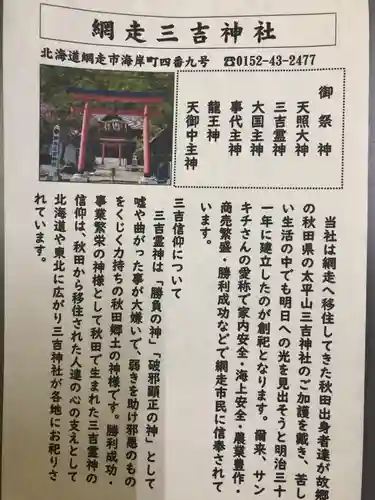 網走三吉神社
北海道網走市海岸町四番九号　☎0152-43-2477
御祭神
天照大神
三吉霊神
大国主神
事代主神
龍王神
天御中主神
当社は網走へ移住してきた秋田出身者達が故郷
の秋田県の太平山三吉神社のご加護を戴き、苦し
い生活の中でも明日への光を見出そうと明治三十
一年に建立したのが創祀となります。爾来、サン
キチさんの愛称で家内安全・海上安全・農業豊作・
商売繁盛・勝利成功などで網走市民に信奉されて
います。
三吉信仰について
三吉霊神は「勝負の神」「破邪顕正の神」として
嘘や曲がった事が大嫌いで、弱きを助け邪悪のもの
をくじく力持ちの秋田郷土の神様です。勝利成功・
事業繁栄の神様として秋田で生まれた三吉霊神の
信仰は、秋田から移住された人達の心の支えとして
北海道や東北に広がり三吉神社が各地にお祀りさ
れています。